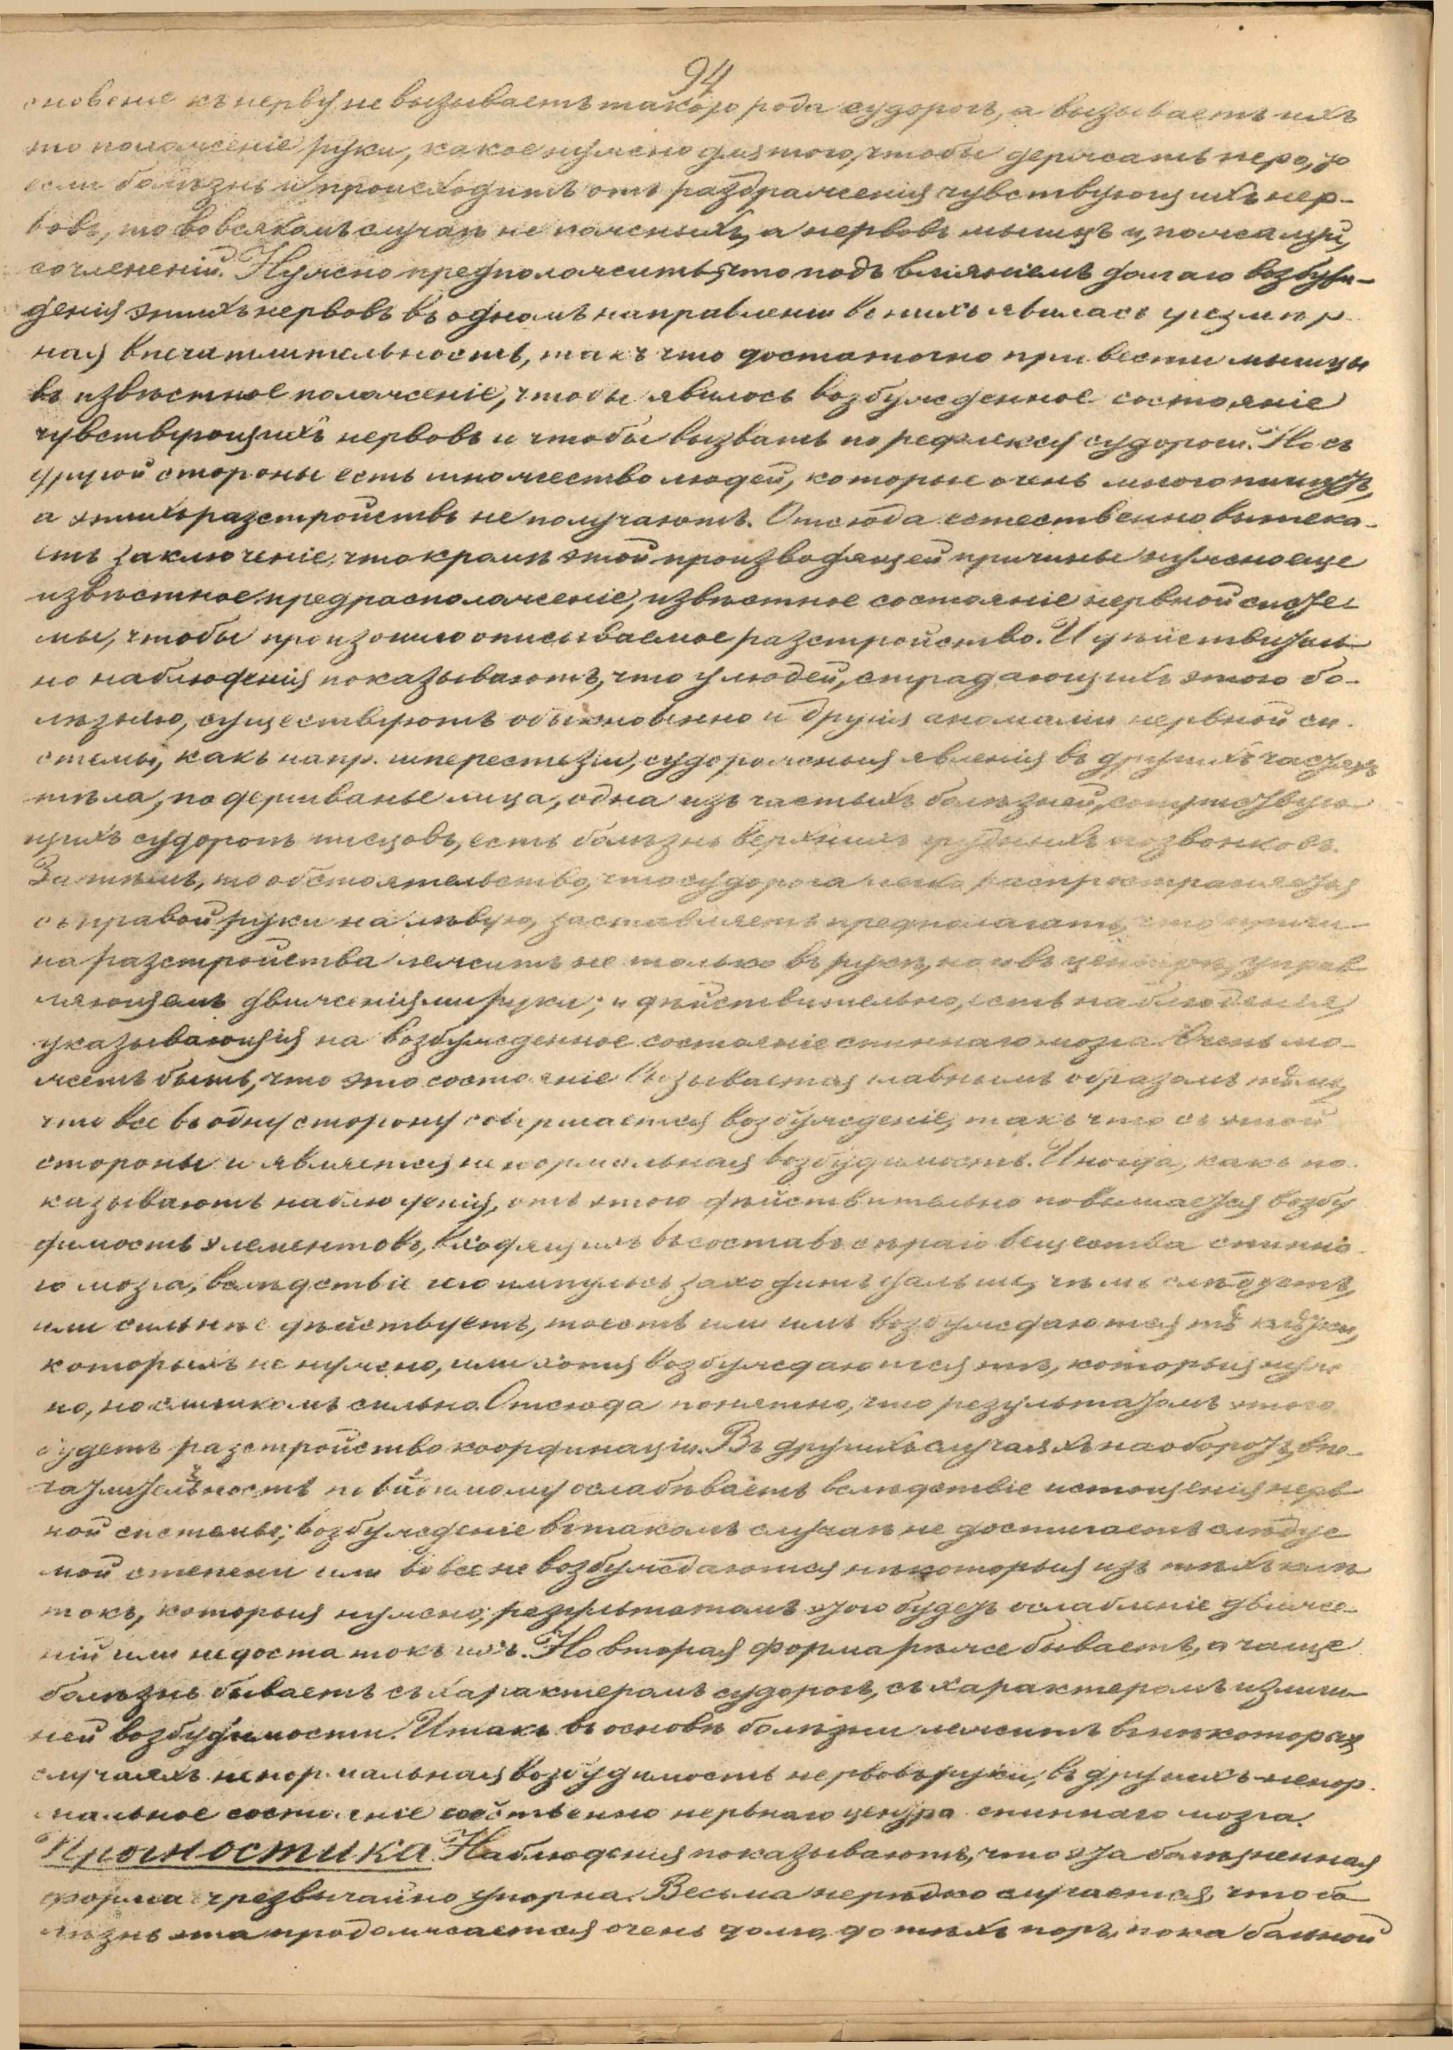 94
сновение къ нерву не вызываетъ такого рода судорогъ, а вызываетъ ихъ
то положеніе руки, какое нужно для того, чтобы держать перо, и
если болѣзнь и происходитъ отъ раздраженія чувствующихъ нер-
вовъ, то во всякомъ случаѣ не кожныхъ, а нервовъ мышцъ и, пожалуй,
сочлененій. Нужно предположить, что подъ вліяніемъ долгаго возбуж-
денія этихъ нервовъ въ одномъ направленіи въ нихъ явилась чрезмѣр
ная впечатлительность, такъ что достаточно привести мышцы
въ извѣстное положеніе, чтобы явилось возбужденное состояніе
чувствующихъ нервовъ и чтобы вызвать по рефлексу судороги. Но съ
другой стороны есть множество людей, которые очень много пишутъ,
а этихъ разстройствъ не получаютъ. Отсюда естественно вытека-
етъ заключеніе, что кромѣ этой производящей причины нужно еще
извѣстное предрасположеніе, извѣстное состояніе нервной систе
мы, чтобы произошло описываемое разстройство. И дѣйствитель
но наблюденія показываютъ, что у людей, страдающихъ этою бо-
лѣзнью, существуютъ обыкновенно и другія аномаліи нервной си-
стемы, какъ напр. гиперестезіи, судорожныя явленія въ другихъ частяхъ
тѣла, подергиванье лица, одна изъ частыхъ болѣзней, сопутствую
щихъ судорогѣ писцовъ, есть болѣзнь верхнихъ грудныхъ позвонковъ.
Затѣмъ, то обстоятельство, что судорога легко распространяется
съ правой руки на лѣвую, заставляетъ предполагать, что причи-
на разстройства лежитъ не только въ рукѣ, но и въ центрѣ, управ
ляющемъ движеніями руки; и дѣйствительно, есть наблюденія,
указывающія на возбужденное состояніе спиннаго мозга. Очень мо-
жетъ быть, что это состояніе вызывается главнымъ образомъ тѣмъ,
что все въ одну сторону совершается возбужденіе, такъ что съ этой
стороны и является ненормальная возбудимость. Иногда, какъ по-
казываютъ наблюденія, отъ этого дѣйствительно повышается возбу
димость элементовъ, входящихъ въ составъ сѣраго вещества спинно-
го мозга, вслѣдствіе чего импульсъ заходитъ дальше, чѣмъ слѣдуетъ,
или сильнѣе дѣйствуетъ, то есть или имъ возбуждаются тѣ клѣтки,
которыхъ не нужно, или хотя возбуждаются тѣ, которыя нуж
но, но слишкомъ сильно. Отсюда понятно, что результатомъ этого
будетъ разстройство координаціи. Въ другихъ случаяхъ наоборотъ, впе-
чатлительность повидимому ослабѣваетъ вслѣдствіе истощенія нерв
ной системы; возбужденіе въ такомъ случаѣ не достигаетъ слѣдуе
мой степени или вовсе не возбуждаются нѣкоторыя изъ тѣхъ клѣ
токъ, которыя нужно; результатомъ этого будетъ ослабленіе движе-
ній или недостатокъ ихъ. Но вторая форма рѣже бываетъ, а чаще
болѣзнь бываетъ съ характеромъ судорогъ, съ характеромъ излиш
ней возбудимости. Итакъ въ основѣ болѣзни лежитъ въ нѣкоторыхъ
случаяхъ ненормальная возбудимость нервовъ руки, въ другихъ ненор-
мальное состояніе собственно нервнаго центра спиннаго мозга.
Прогностика. Наблюденія показываютъ, что эта болѣзненная
форма чрезвычайно упорна. Весьма нерѣдко случается, что бо
лѣзнь эта продолжается очень долго, до тѣхъ поръ, пока больной